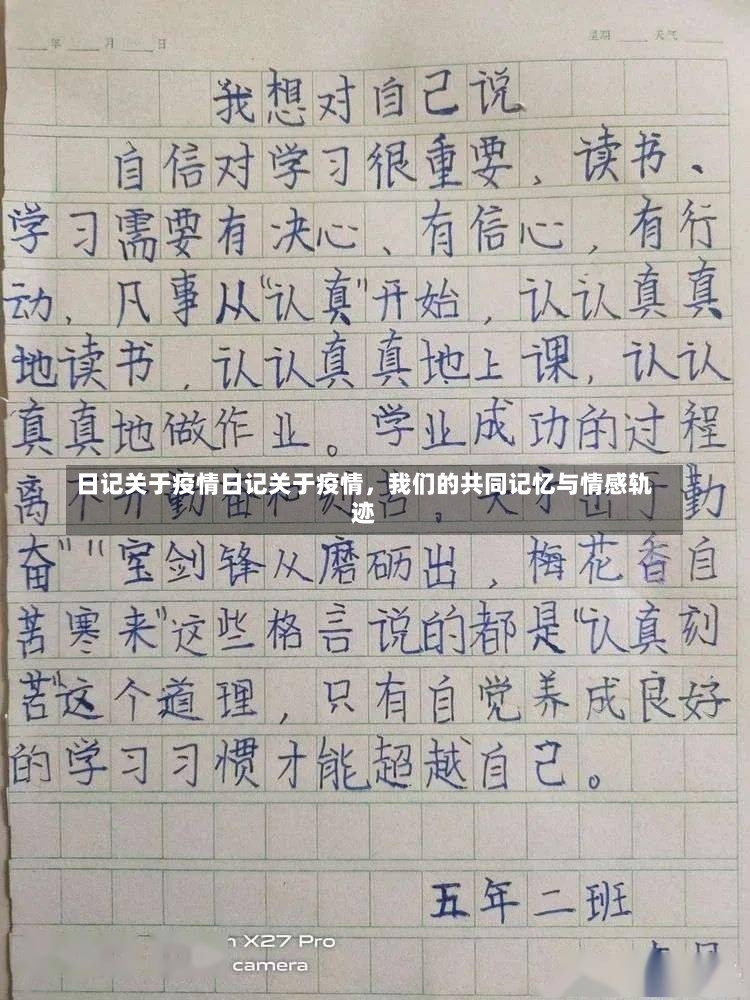 年 月 日 星期 天气
我想对自己说
自信对学习很重要，读书、
学习需要有决心、有信心，有行
动，凡事从“认真”开始，认认真真
地读书，认认真真地上课，认认
真真地做作业。学业成功的过程
离不开勤奋和刻苦。“天才出于勤
日记关于疫情日记关于疫情，我们的共同记忆与情感轨
迹
奋”“宝剑锋从磨砺出，梅花香自
苦寒来”这些格言说的都是“认真刻
苦”这个道理，只有自觉养成良好
的学习习惯才能超越自己。
五年二班
X27 Pro
camera